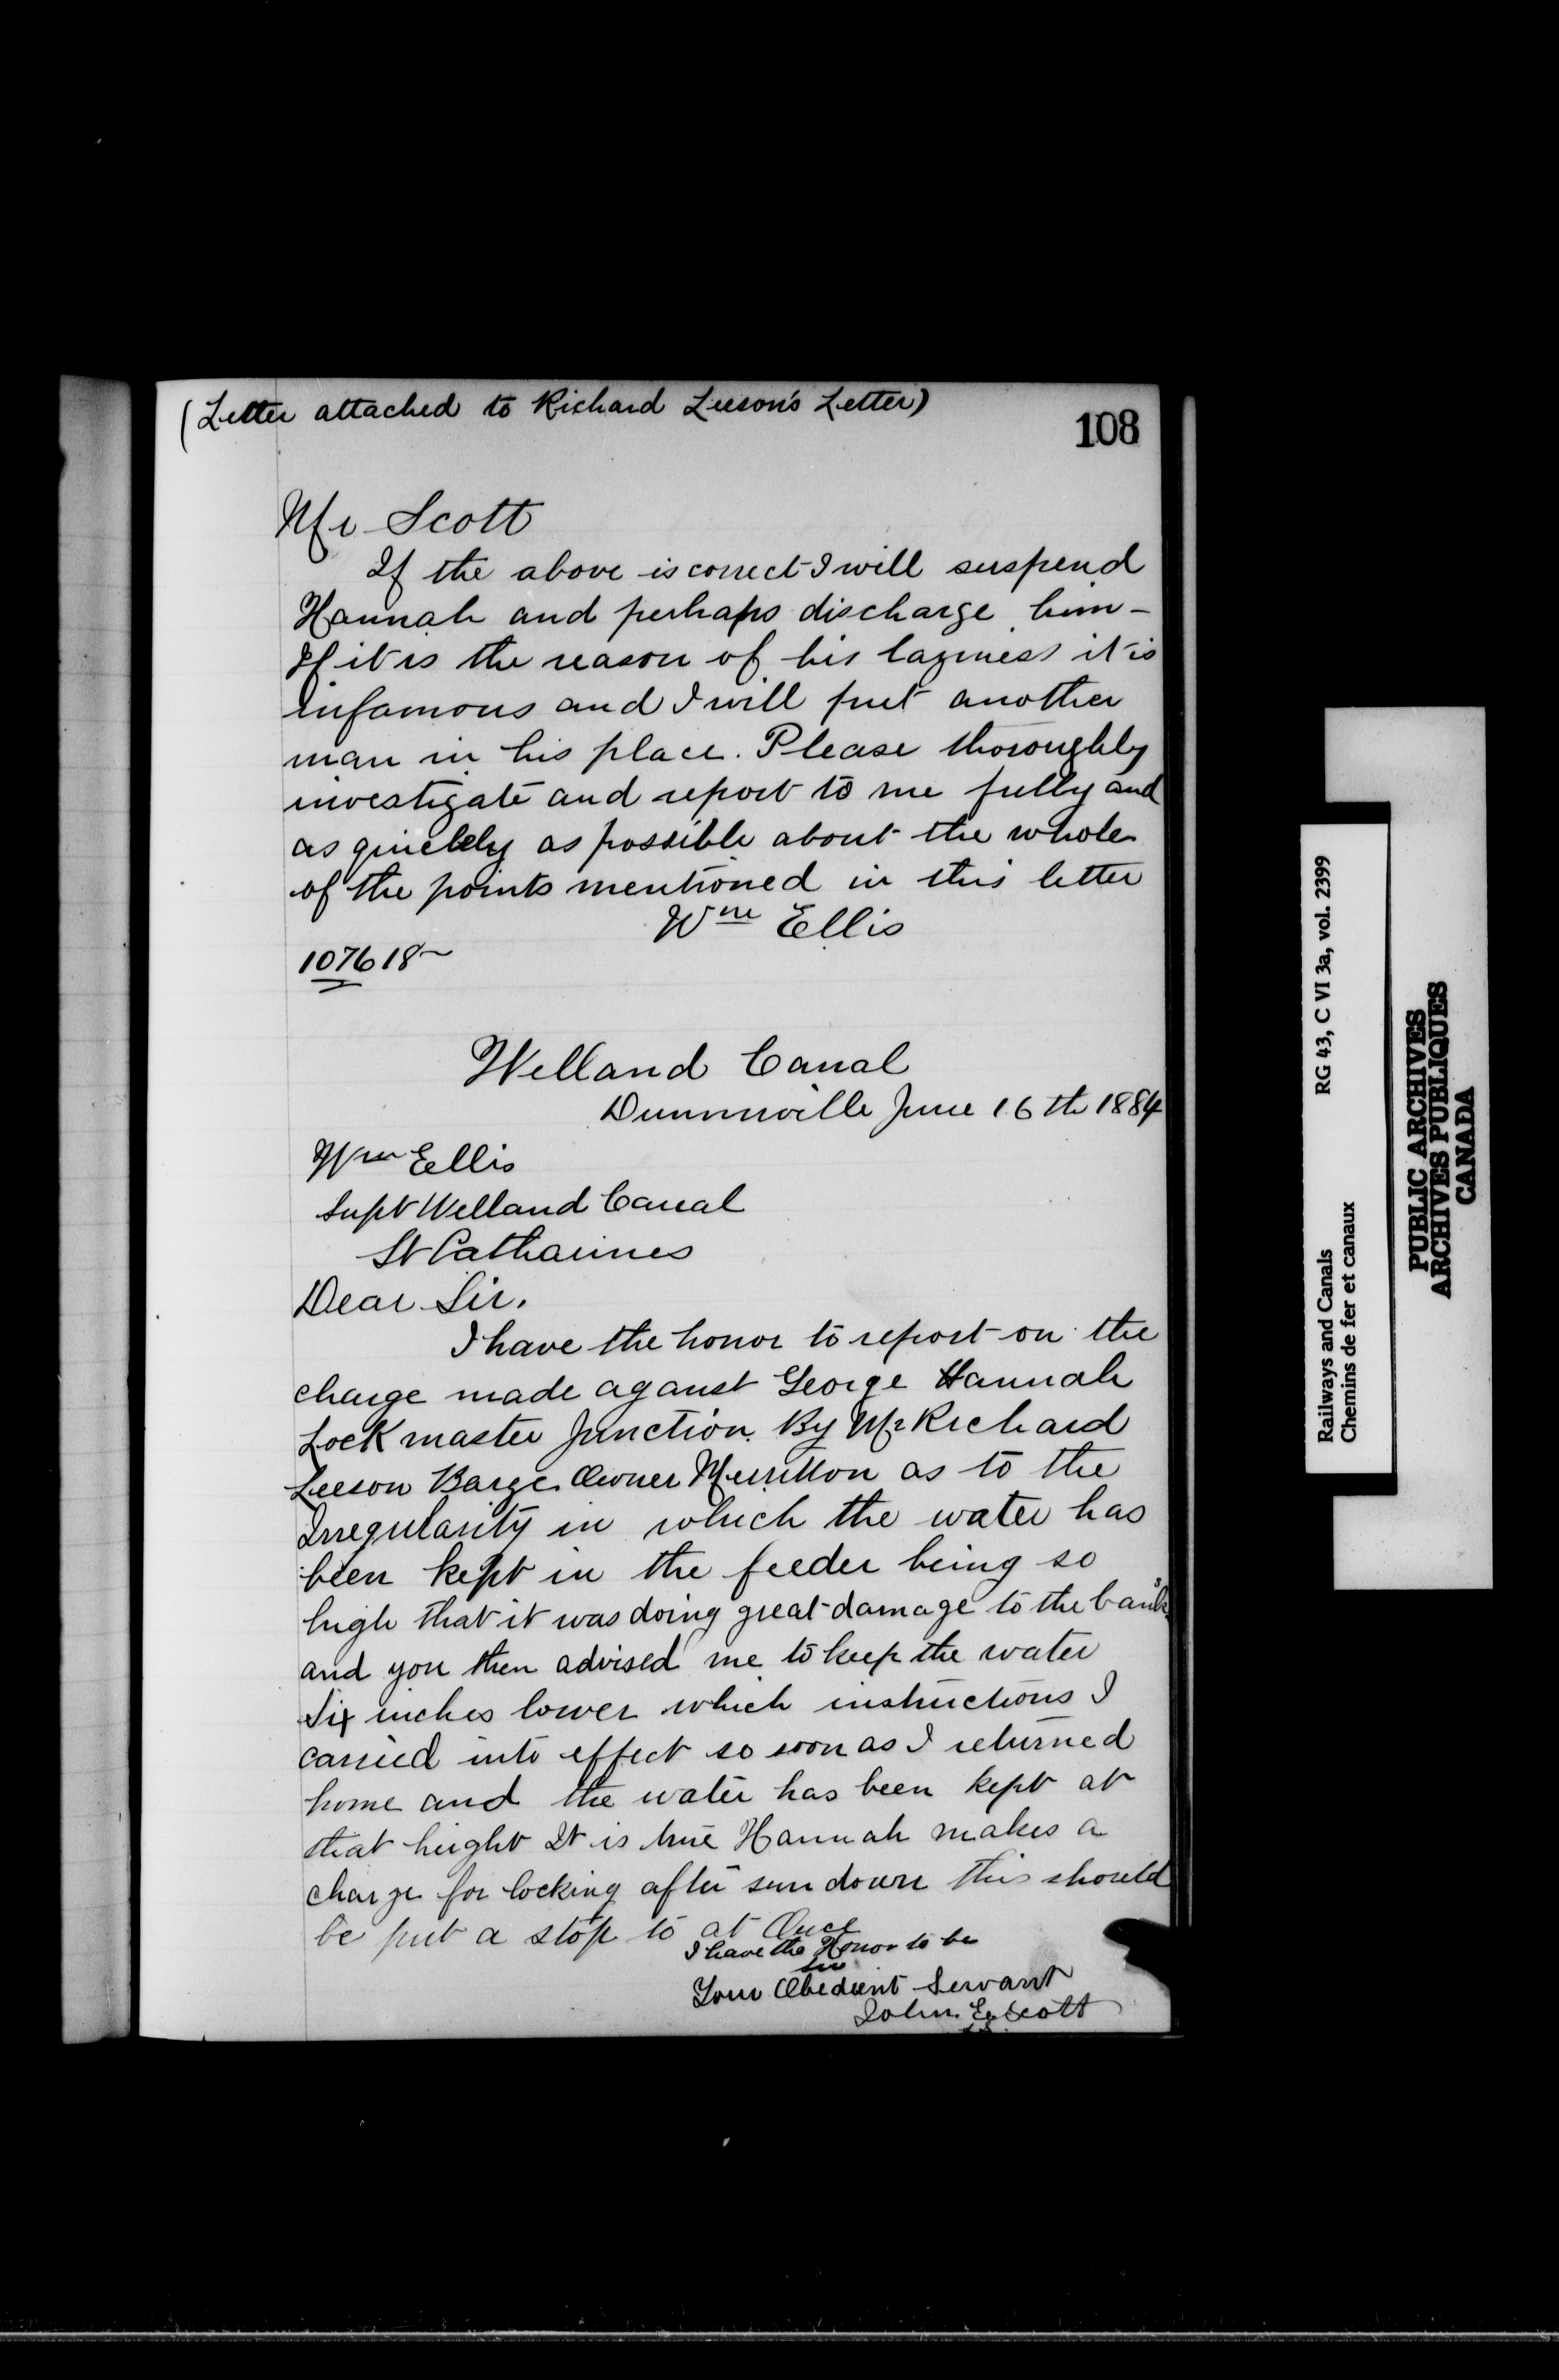 (Letter attached to Richard Leeson's Letter)
108
Mr Scott
If the above is correct I will suspend
Hannah and perhaps discharge him -
If it is the reason of his laziness it is
infamous and I will put another
man in his place. Please thoroughly
investigate and report to me fully and
as quickly as possible about the whole
of the points mentioned in this letter
Wm Ellis
107618
Welland Canal
Dunnville June 16th 1884
Wm Ellis
Supt Welland Canal
St Catharines
Dear Sir.
I have the honor to report on the
charge made against George Hannah
Lock master Junction. By Mr Richard
Leeson Barge Owner Merritton as to the
Irregularity in which the water has
been kept in the feeder being so
high that it was doing great damage to the banks
and you then advised me to keep the water
Six inches lower which instructions I
carried into effect so soon as I returned
home and the water has been kept at
that height It is true Hannah makes a
charge for locking after sun down this should
be put a stop to at Once
I have the Honor to be
Sir
Your Obedient Servant
John Scott
Railways and Canals RG 43, C VI 3a, vol. 2399
Chemins de fer et canaux
PUBLIC ARCHIVES
ARCHIVES PUBLIQUES
CANADA